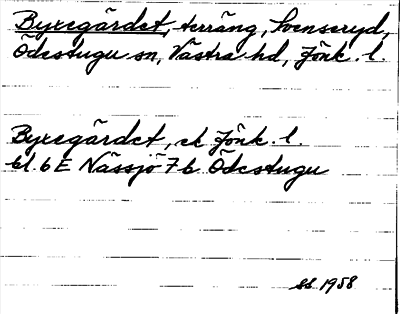 Byxegärdet, terräng, Svenseryd,
Ödestugu sn, Västra hd, Jönk. l.
Byxegärdet, ek Jönk. l.
bl. 6 E Nässjö 7 b Ödestugu
1958